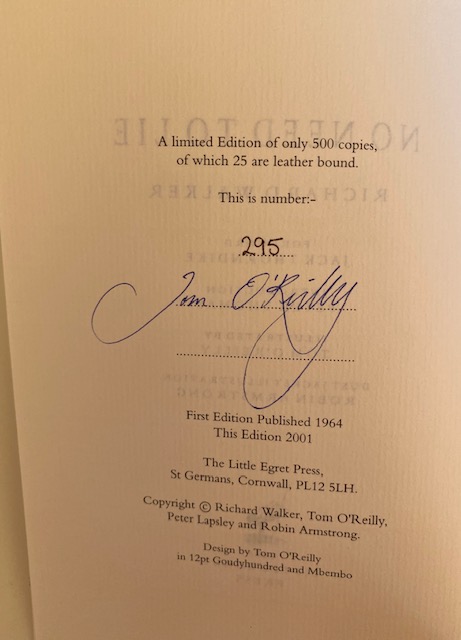 A limited Edition of only 500 copies,
of which 25 are leather bound.
This is number:-
295
Tom O'Reilly
First Edition Published 1964
This Edition 2001
The Little Egret Press,
St Germans, Cornwall, PL12 5LH.
Copyright © Richard Walker, Tom O'Reilly,
Peter Lapsley and Robin Armstrong.
Design by Tom O'Reilly
in 12pt Goudyhundred and Mbembo